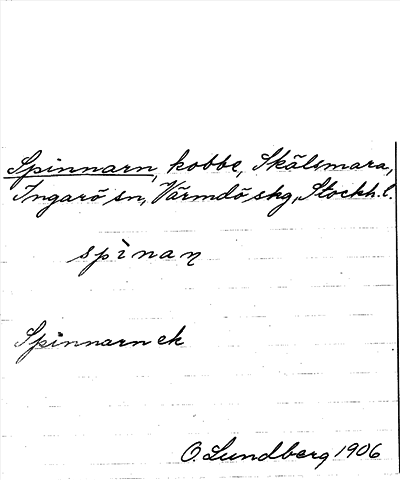 Spinnarn, kobbe, Skälsmara,
Ingarö sn, Värmdö skg, Stockh. l.
spìnaṇ
Spinnarn ek
O. Lundberg 1906